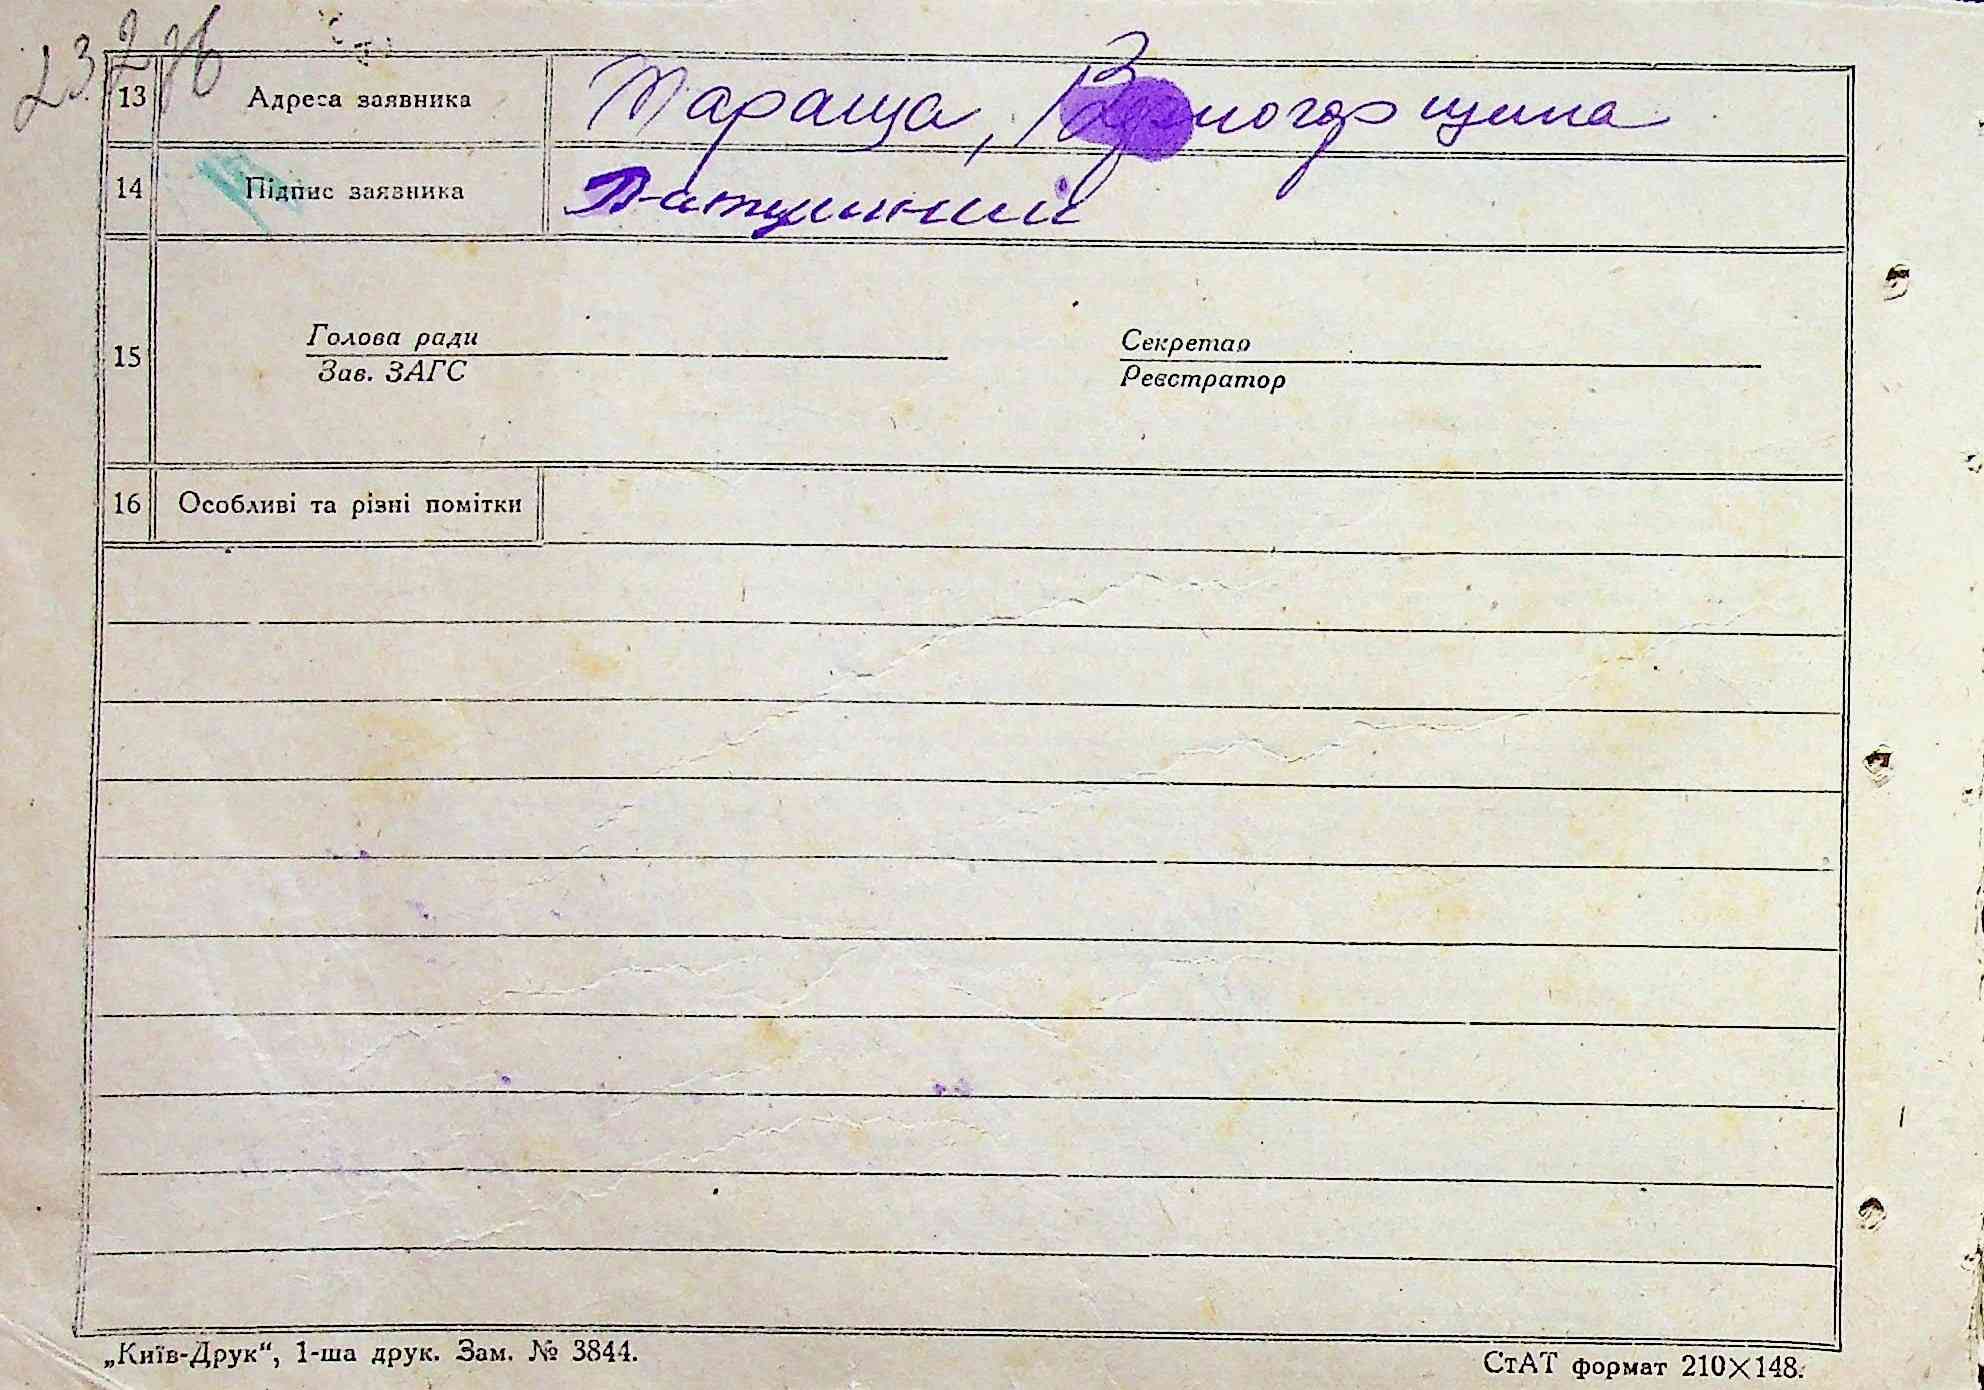 13 Адреса заявника Тараща,
14 Підпис заявника
15 Голова ради Секретар
Зав. ЗАГС Реєстратор
16 Особливі та різні помітки
„Київ-Друк“, 1-ша друк. Зам. № 3844. СтАТ формат 210×148.